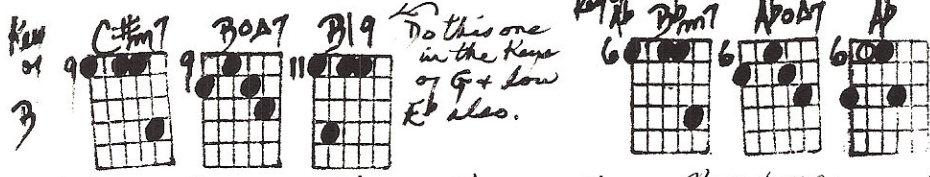 Key of B
C#m7 Bo∆7 B/9
9 9 11
Do this one
in the Keys
of G & low
Eb also.
Key Ab
Bbm7 Abo∆7 Ab
6 6 6